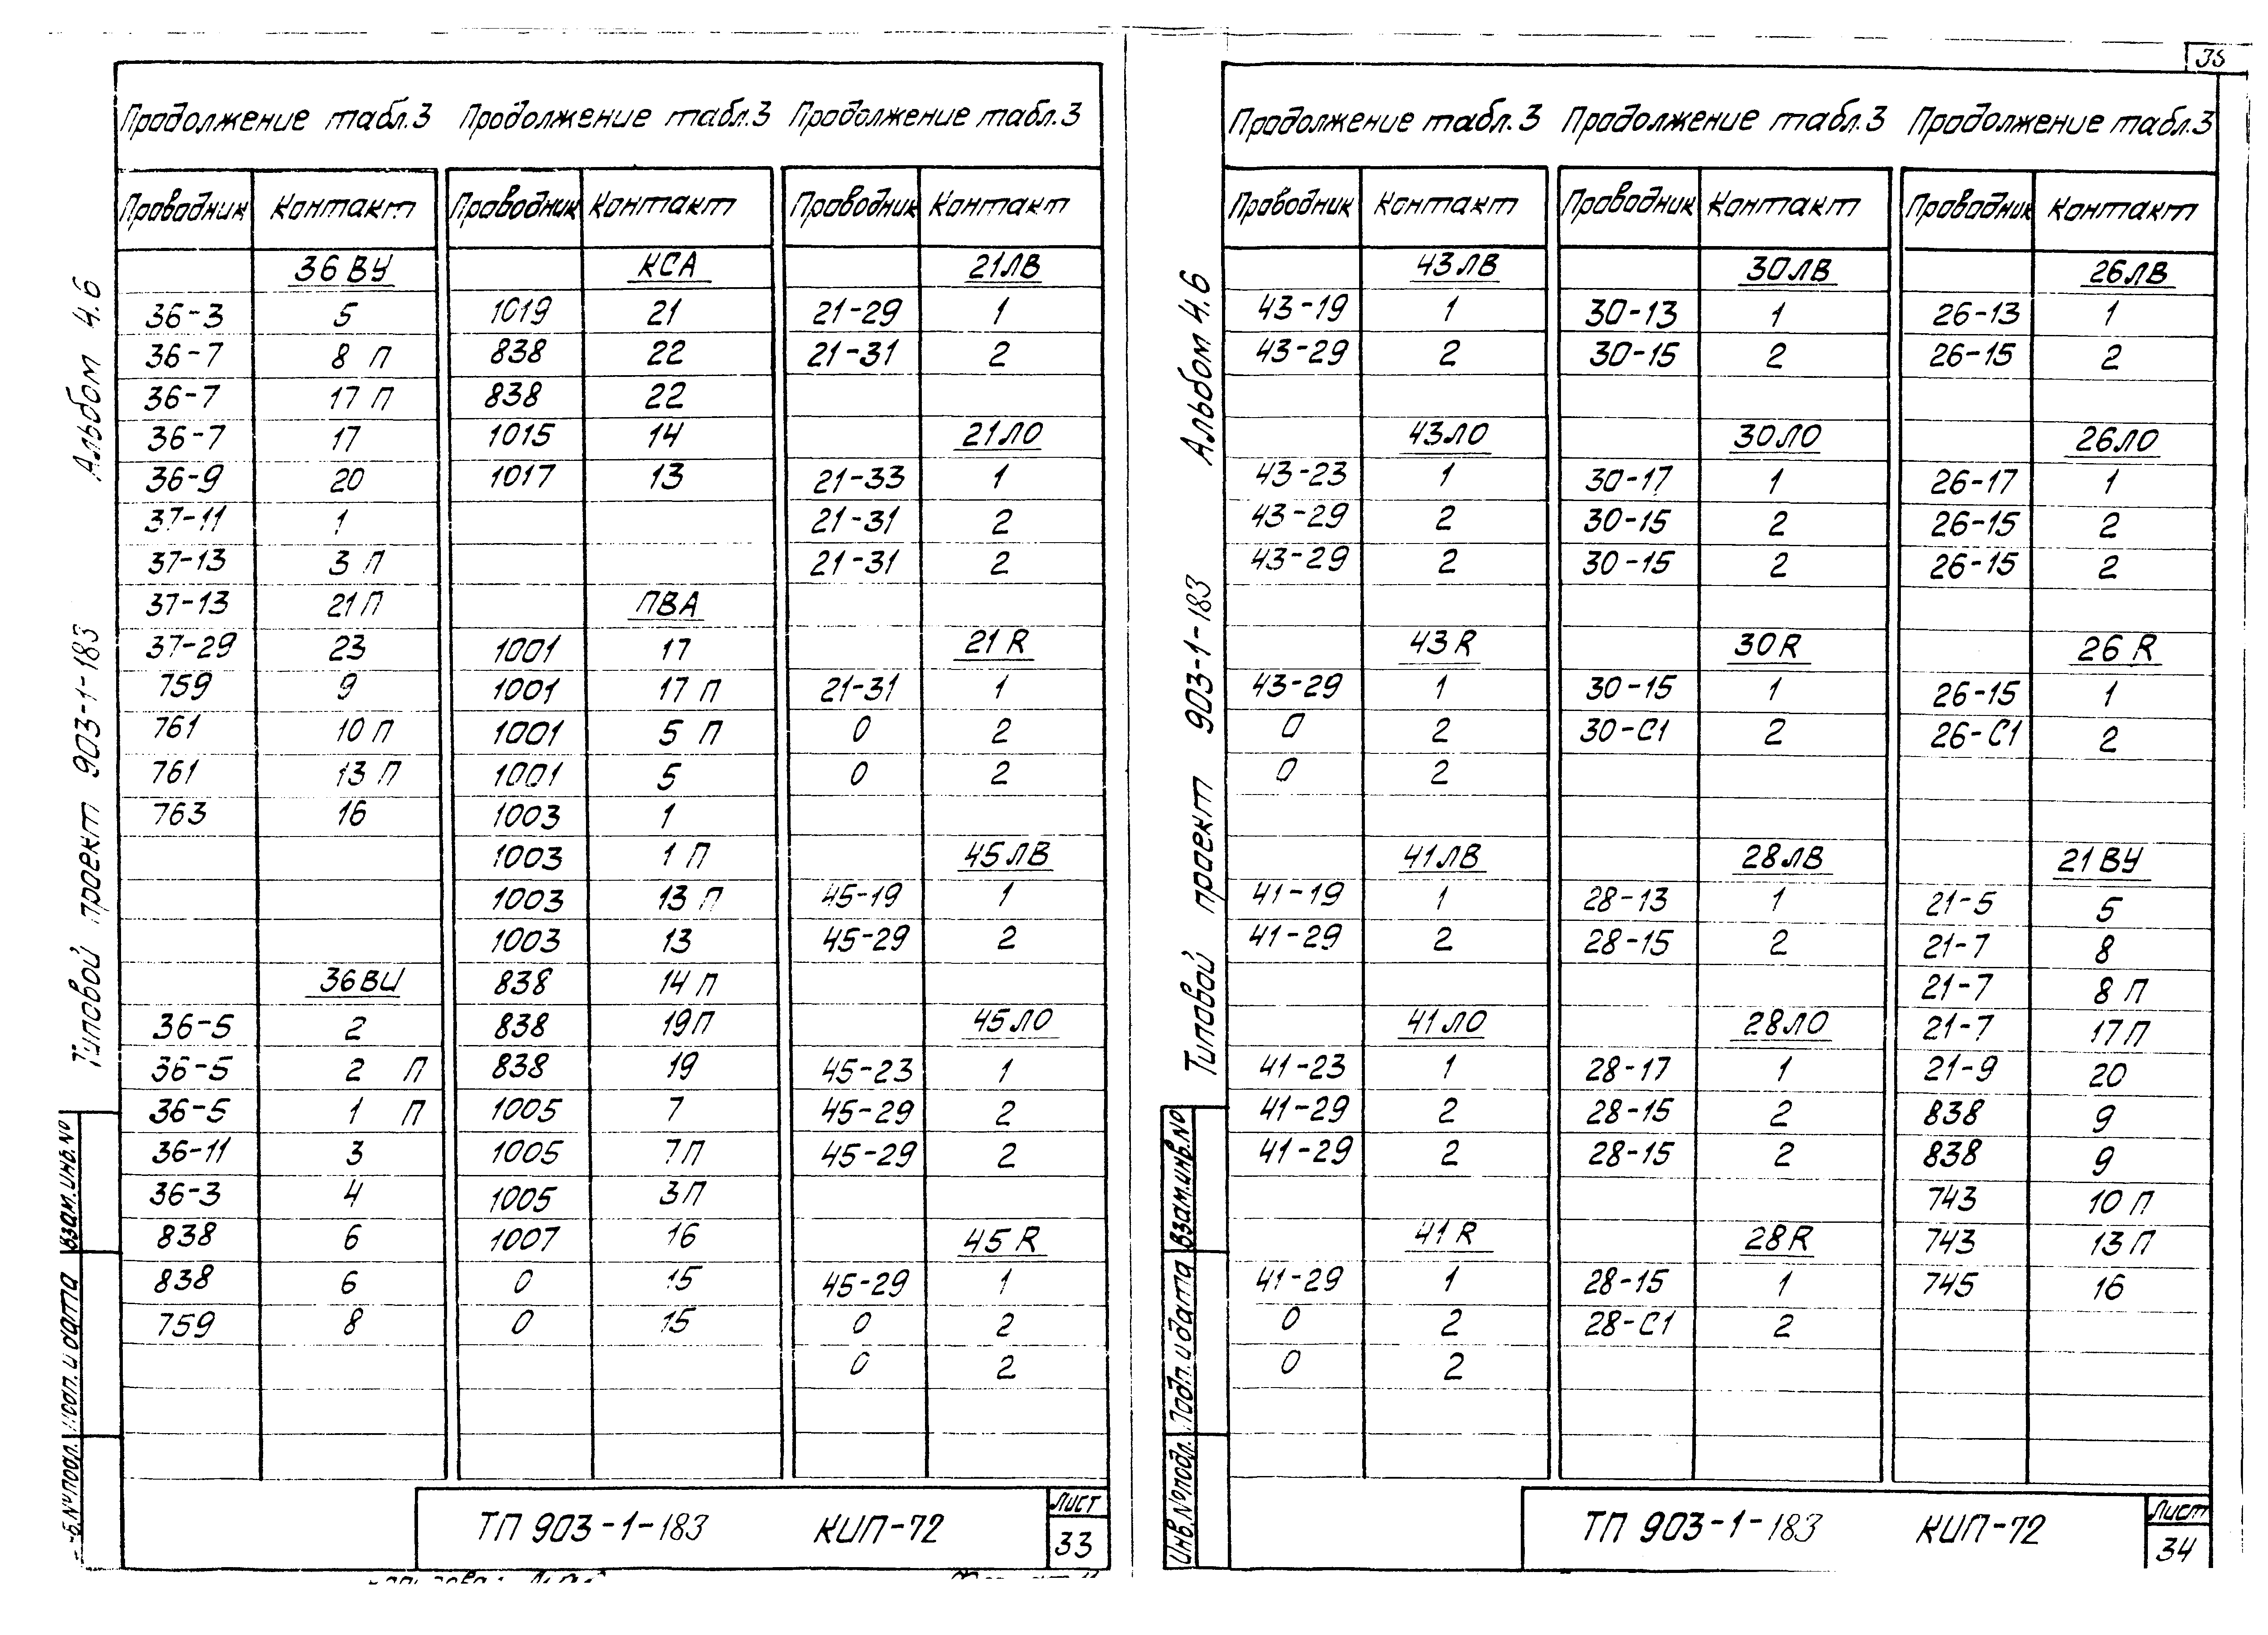 35
Продолжение табл.3 Продолжение табл.3 Продолжение табл.3
Проводник Контакт Проводник Контакт Проводник Контакт
36ВУ КСА 21ЛВ
36-3 5 1019 21 21-29 1
36-7 8 П 838 22 21-31 2
36-7 17 П 838 22
36-7 17 1015 14 21ЛО
36-9 20 1017 13 21-33 1
37-11 1 21-31 2
37-13 3 П 21-31 2
37-13 21 П ПВА
37-29 23 1001 17 21 R
759 9 1001 17 П 21-31 1
761 10 П 1001 5 П 0 2
761 13 П 1001 5 0 2
763 16 1003 1
1003 1 П 45ЛВ
1003 13 П 45-19 1
1003 13 45-29 2
36ВЦ 838 14 П
36-5 2 838 19П 45ЛО
36-5 2 П 838 19 45-23 1
36-5 1 П 1005 7 45-29 2
36-11 3 1005 7П 45-29 2
36-3 4 1005 3П
838 6 1007 16 45 R
838 6 0 15 45-29 1
759 8 0 15 0 2
0 2
Альбом 4.6
Типовой проект 903-1-183
Взам.инв.№
Подп. и дата
№ подл.
ТП 903-1-183 КИП-72
Лист
33
Продолжение табл.3 Продолжение табл.3 Продолжение табл.3
Проводник Контакт Проводник Контакт Проводник Контакт
43ЛВ 30ЛВ 26ЛВ
43-19 1 30-13 1 26-13 1
43-29 2 30-15 2 26-15 2
43ЛО 30ЛО 26ЛО
43-23 1 30-17 1 26-17 1
43-29 2 30-15 2 26-15 2
43-29 2 30-15 2 26-15 2
43 R 30 R 26 R
43-29 1 30-15 1 26-15 1
0 2 30-С1 2 26-С1 2
0 2
41ЛВ 28ЛВ 21ВУ
41-19 1 28-13 1 21-5 5
41-29 2 28-15 2 21-7 8
21-7 8 П
41ЛО 28ЛО 21-7 17П
41-23 1 28-17 1 21-9 20
41-29 2 28-15 2 838 9
41-29 2 28-15 2 838 9
743 10 П
41 R 28 R 743 13 П
41-29 1 28-15 1 745 16
0 2 28-С1 2
0 2
Альбом 4.6
Типовой проект 903-1-183
Взам.инв.№
Подп. и дата
Инв.№подл.
ТП 903-1-183 КИП-72
Лист
34